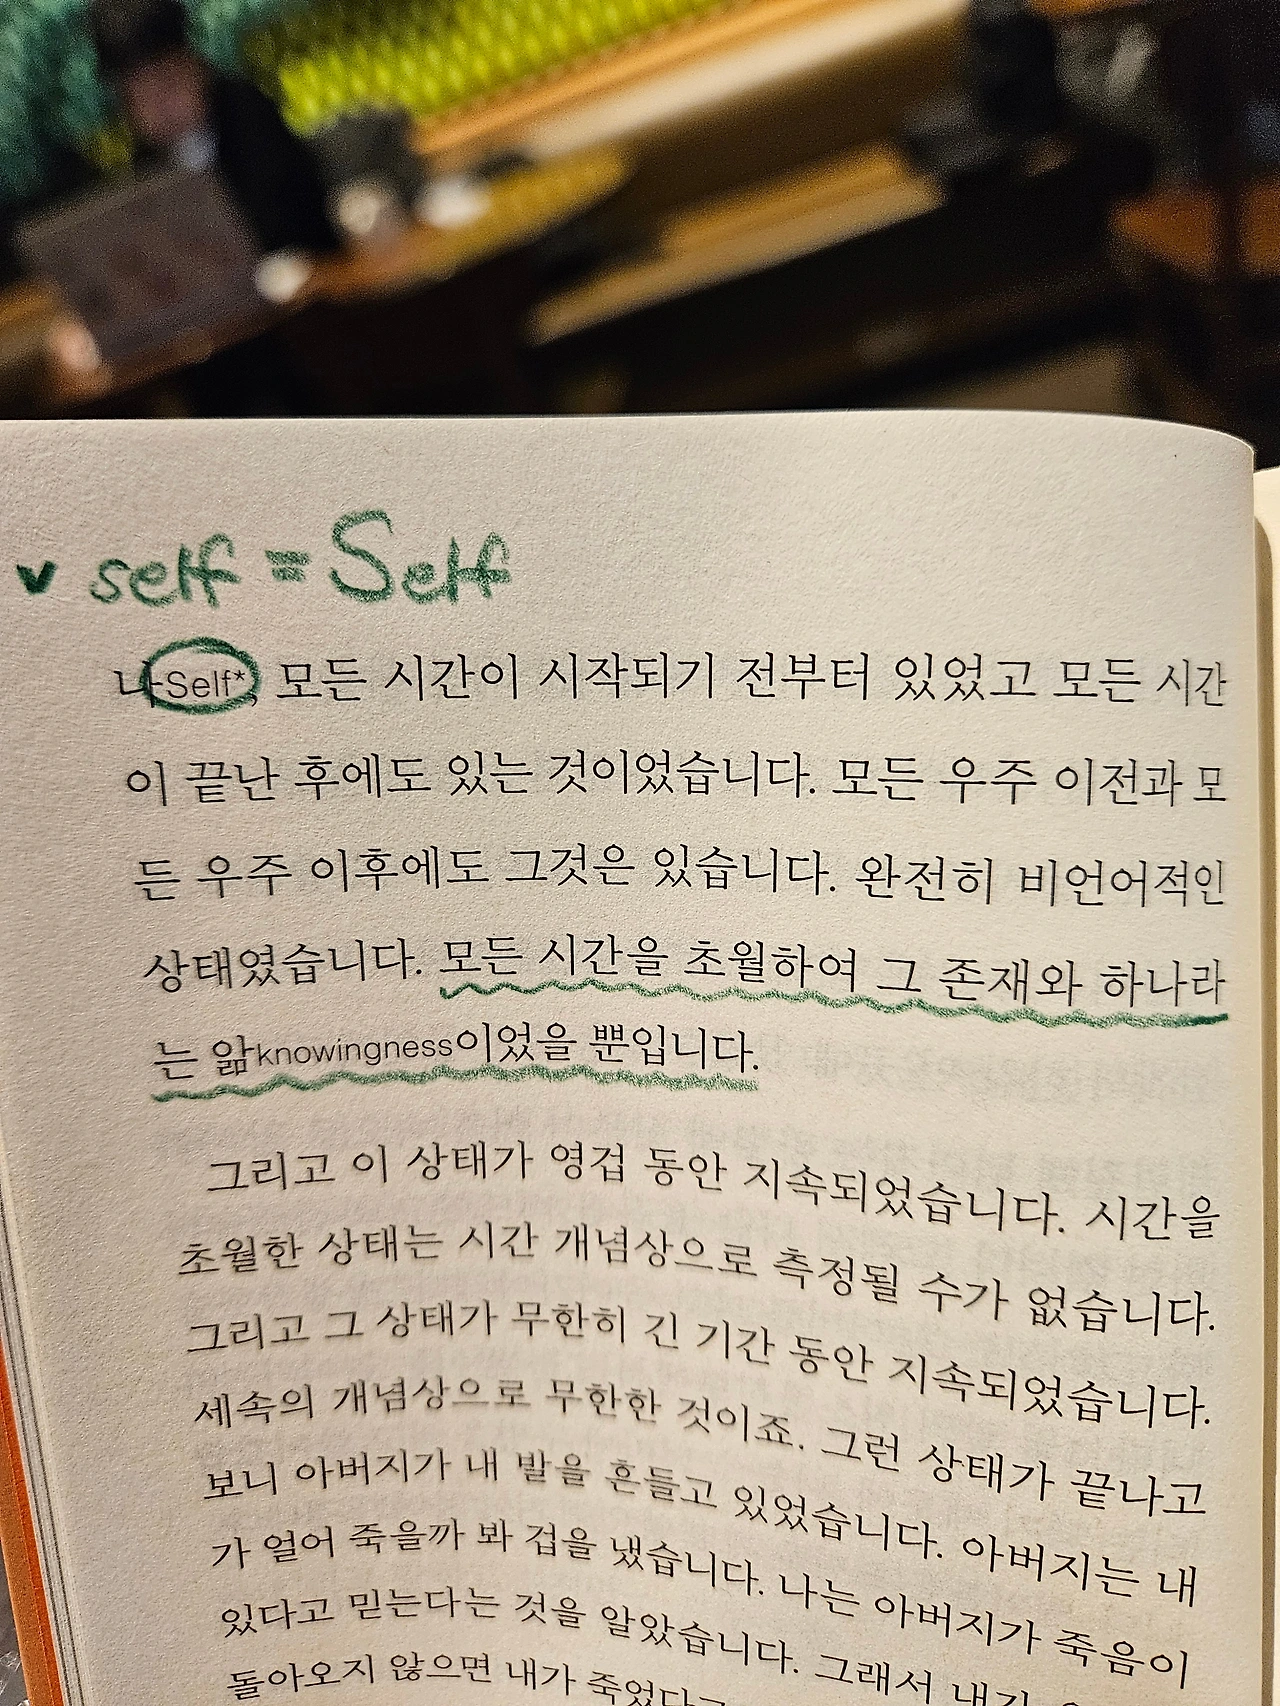 ✓ self = Self
나Self*, 모든 시간이 시작되기 전부터 있었고 모든 시간
이 끝난 후에도 있는 것이었습니다. 모든 우주 이전과 모
든 우주 이후에도 그것은 있습니다. 완전히 비언어적인
상태였습니다. 모든 시간을 초월하여 그 존재와 하나라
는 앎knowingness이었을 뿐입니다.
그리고 이 상태가 영겁 동안 지속되었습니다. 시간을
초월한 상태는 시간 개념상으로 측정될 수가 없습니다.
그리고 그 상태가 무한히 긴 기간 동안 지속되었습니다.
세속의 개념상으로 무한한 것이죠. 그런 상태가 끝나고
보니 아버지가 내 발을 흔들고 있었습니다. 아버지는 내
가 얼어 죽을까 봐 겁을 냈습니다. 나는 아버지가 죽음이
있다고 믿는다는 것을 알았습니다. 그래서 내가
돌아오지 않으면 내가 죽었다고